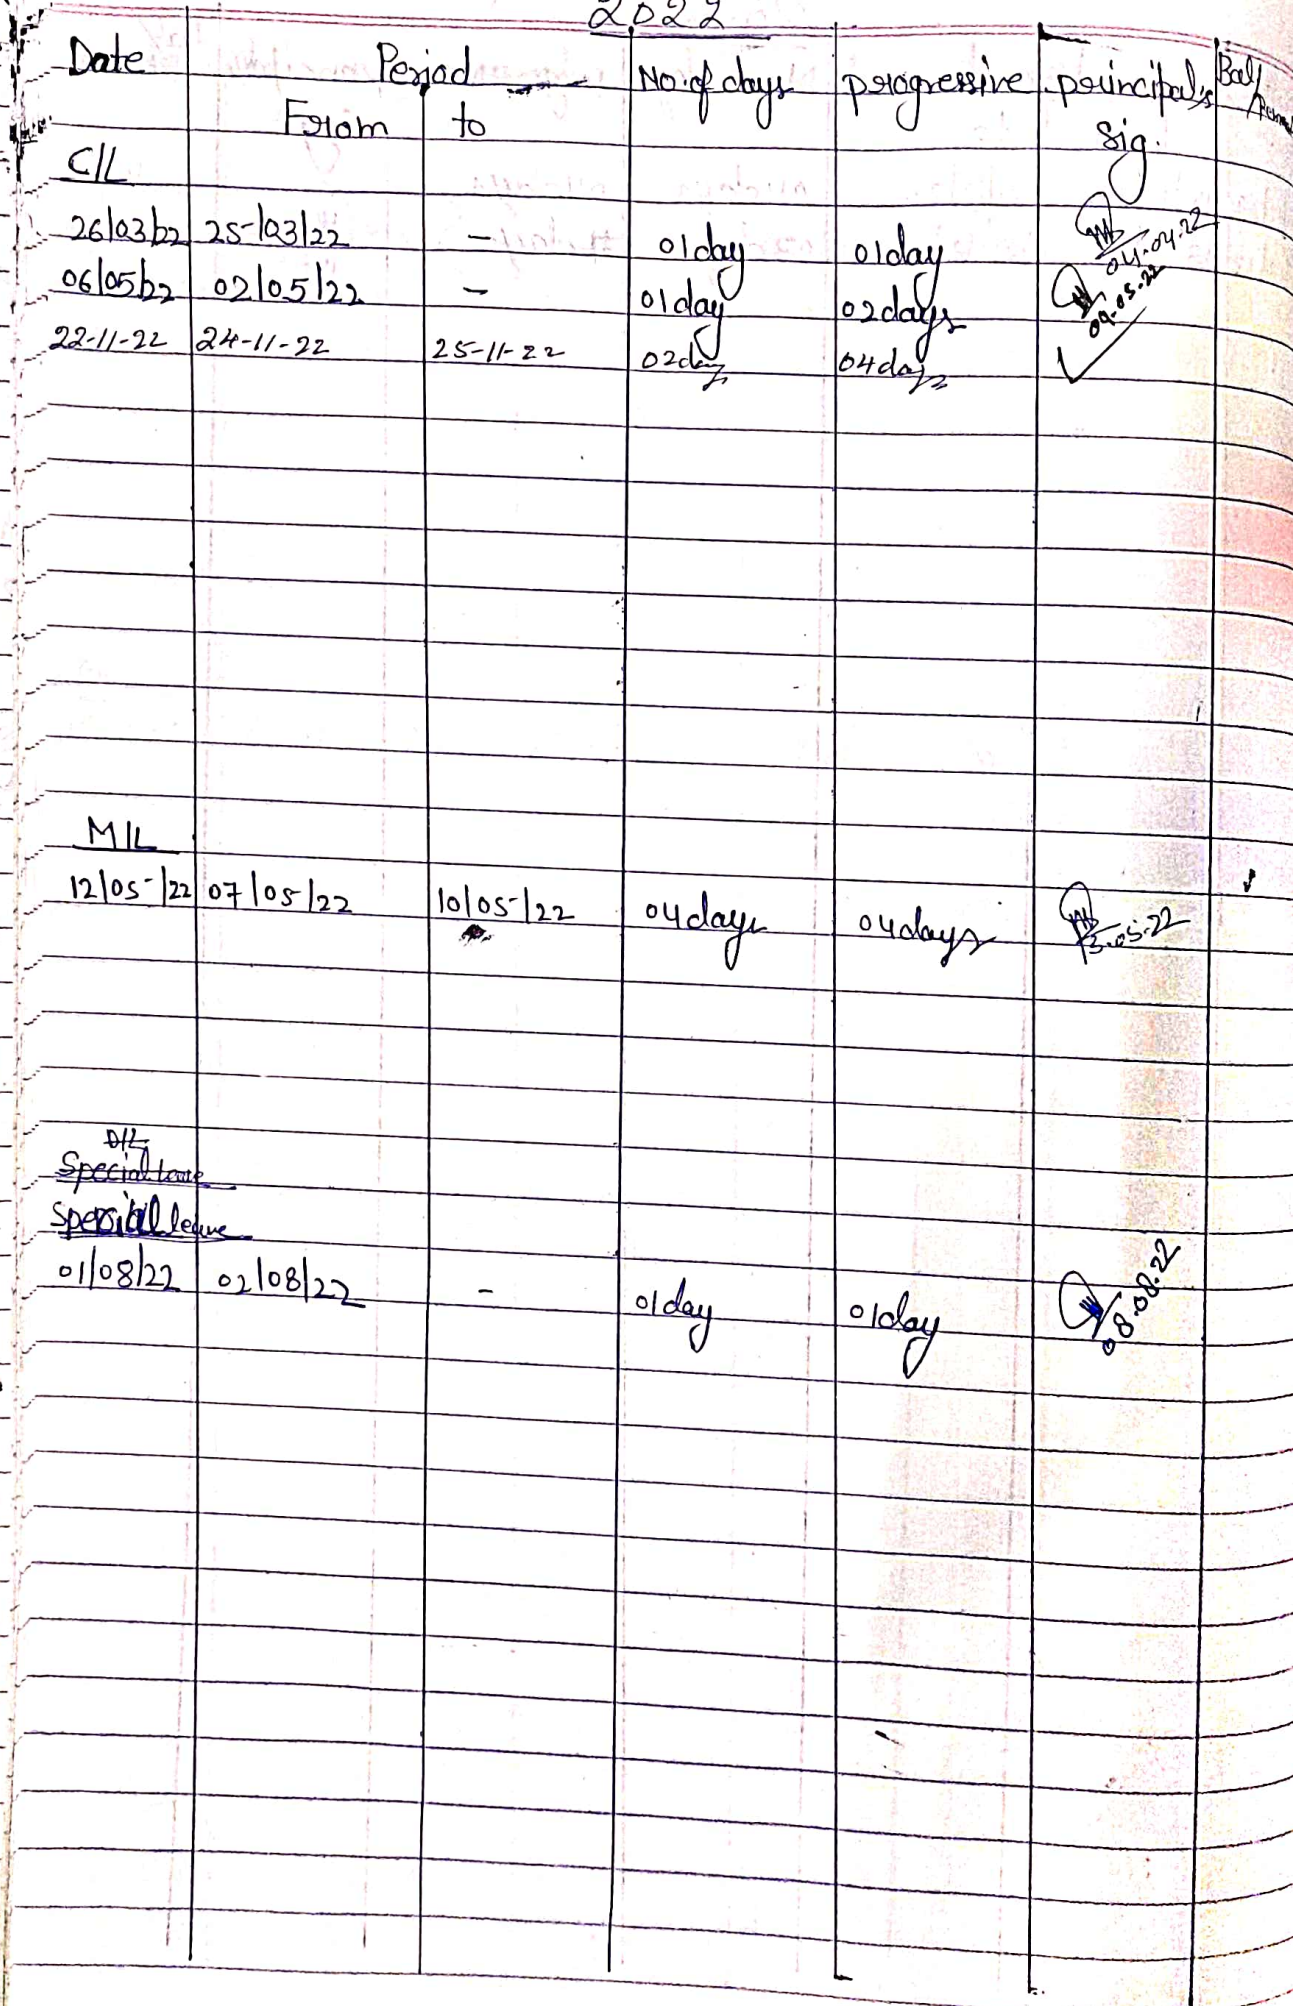 2022
Date Period No. of days progressive principal's Bal/
From to sig.
C/L
26/03/22 25/03/22 - 01 day 01 day 04.04.22
06/05/22 02/05/22 - 01 day 02 days 09.05.22
22-11-22 24-11-22 25-11-22 02 days 04 days
M/L
12/05/22 07/05/22 10/05/22 04 days 04 days 13.05.22
D/L
Special leave
Special leave
01/08/22 02/08/22 - 01 day 01 day 08.08.22